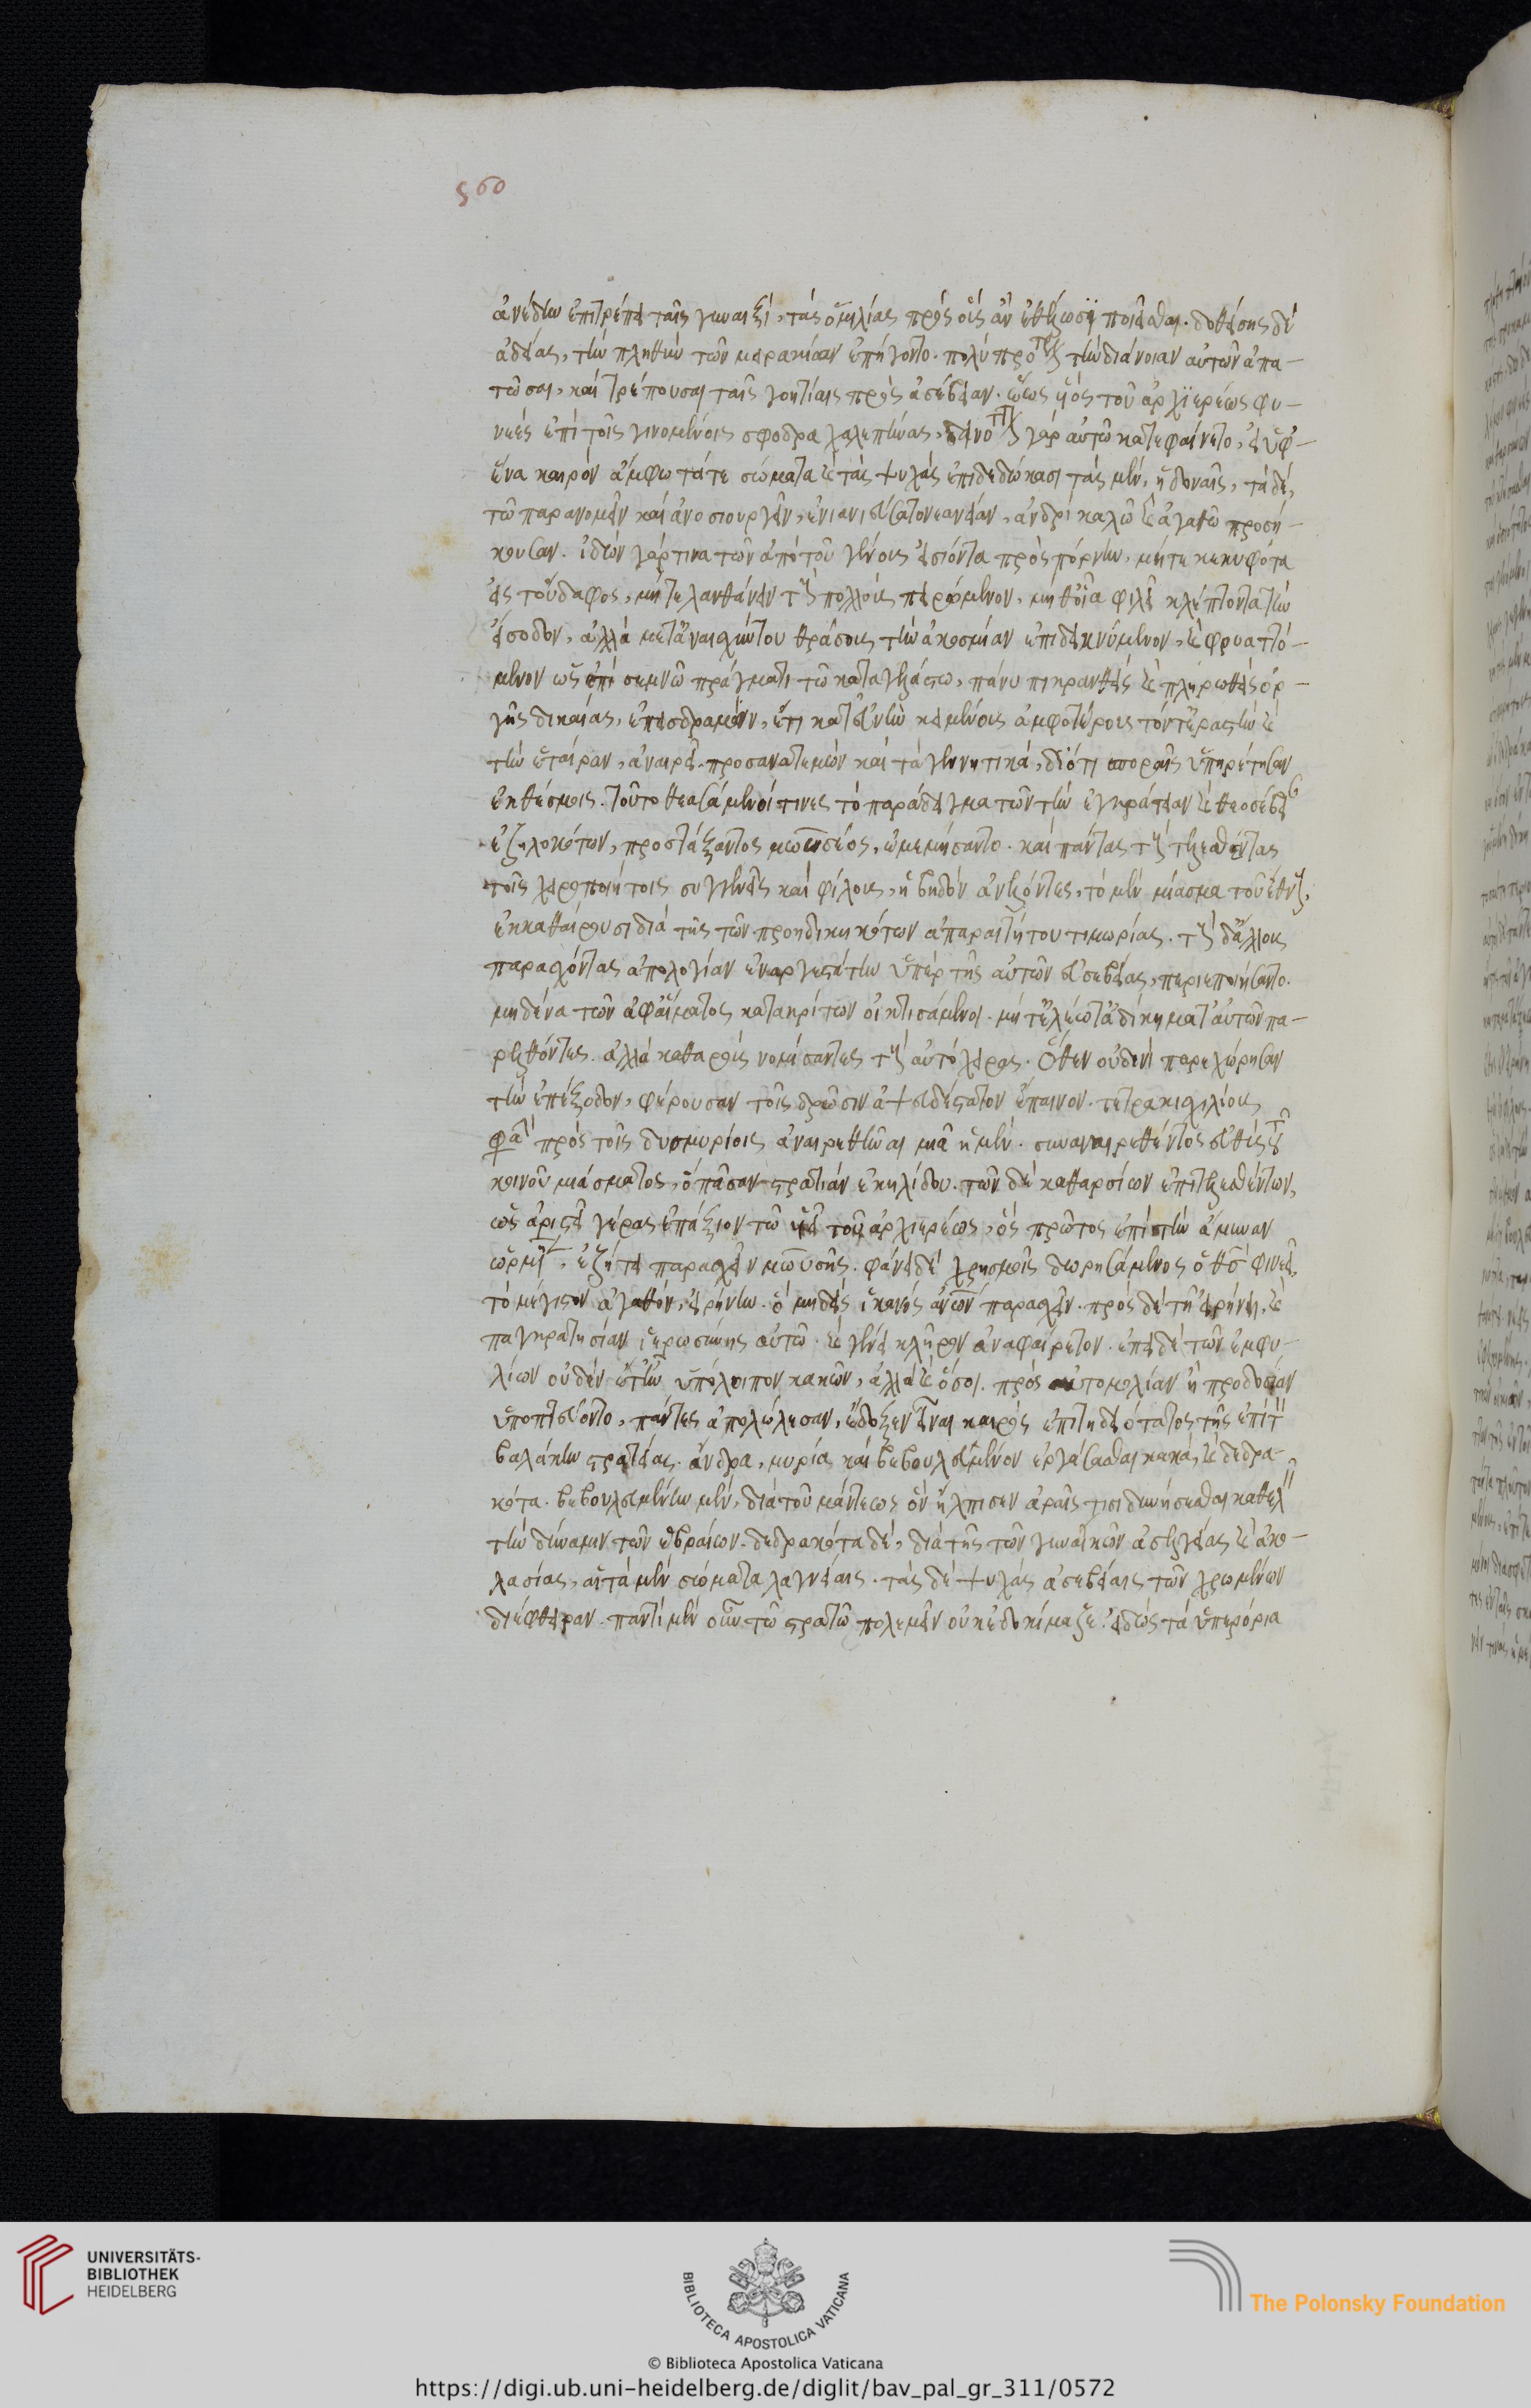 560
ἀνέδην ἐπιτρέπει ταῖς γυναιξὶ, τὰς ὁμιλίας πρὸς οὓς ἂν ἐθέλωσϊ ποιεῖσθαι. δοθείσης δὲ
ἀδείας, τὴν πληθὺν τῶν μειρακίων ἐπήγοντο. πολὺ πρότερον τὴν διάνοιαν αὐτῶν ἀπα-
τῶσαι, καὶ τρέπουσαι ταῖς γοητίαις πρὸς ἀσέβειαν. ἕως υἱὸς τοῦ ἀρχϊερέως φι-
νεὲς ἐπὶ τοῖς γινομένοις σφόδρα χαλεπήνας, δεινότατον γὰρ αὐτῶ κατεφαίνετο, εἰ ὑφ-
ἕνα καιρὸν ἄμφω τά τε σώματα καὶ τὰς ψυχὰς ἐπιδεδώκασι τὰς μὲν, ἡδοναῖς, τὰ δὲ,
τῶ παρανομεῖν καὶ ἀνοσιουργεῖν, ἐνιανιεύσατο νεανείαν, ἀνδρὶ καλῶ καὶ ἀγαθῶ προσή-
κουσαν. ἰδὼν γάρ τινα τῶν ἀπὸ τοῦ γένους εἰσιόντα πρὸς πόρνην, μήτε κεκυφότα
εἰς τοὔδαφος, μήτε λανθάνειν τοὺς πολλοὺς πειρώμενον, μηθ οἷα φιλεῖ κλέπτοντα τὴν
εἴσοδον, ἀλλὰ μετ ἀναισχύντου θράσους τὴν ἀκοσμίαν ἐπιδεικνύμενον, καὶ φρυαττό-
μενον ὡς ἐπὶ σεμνῶ πράγματι τῶ καταγελάστω, πάνυ πικρανθεὶς καὶ πληρωθεὶς ὀρ-
γῆς δικαίας, ἐπεισδραμὼν, ἔτι κατευνὴν κειμένους ἀμφοτέρους τόν τ ἐραστὴν καὶ
τὴν ἑταίραν, ἀναιρεῖ. προσανατεμὼν καὶ τὰ γεννητικὰ, διότι σποραῖς ὑπηρέτησαν
ἐκθέσμοις. τοῦτο θεασάμενοί τινες τὸ παράδειγμα τῶν τὴν ἐγκράτειαν καὶ θεοσέβειαν
ἐζηλοκότων, προστάξαντος μωϋσέος, ἐμιμήσαντο. καὶ πάντας τοὺς τελεσθέντας
τοῖς χειροποιήτοις συγγενεῖς καὶ φίλους, ἡβηδὸν ἀνελόντες, τὸ μὲν μίασμα τοῦ ἔθνους,
ἐκκαθαίρουσι διὰ τῆς τῶν προηδικηκότων ἀπαραιτήτου τιμωρίας. τοὺς δ ἄλλους
παρασχόντας ἀπολογίαν ἐναργεστάτην ὑπὲρ τῆς αὐτῶν εὐσεβείας, περιεποιήσαντο.
μηδένα τῶν ἀφ αἵματος κατακρίτων οἰκτισάμενοι. μήτ ἐλέω τἀδικήματ αὐτῶν πα-
ρελθόντες. ἀλλὰ καθαροὺς νομίσαντες τοὺς αὐτόχειρας. ὅθεν οὐδενὶ παρεχώρησαν
τὴν ἐπέξοδον, φέρουσαν τοῖς δρῶσιν ἀψευδέστατον ἔπαινον. τετρακισχιλίους
φασὶ πρὸς τοῖς δυσμυρίοις ἀναιρεθῆναι μιᾶ ἡμέρα. συναναιρεθέντος εὐθὺς τοῦ
κοινοῦ μιάσματος, ὃ πᾶσαν στρατιὰν ἐκηλίδου. τῶν δὲ καθαρσίων ἐπιτελεσθέντων,
ὡς ἀριστεῖ γέρας ἐπάξιον τῶ υἱεῖ τοῦ ἀρχιερέως, ὃς πρῶτος ἐπὶ τὴν ἄμυναν
ὥρμησεν, ἐζήτει παρασχεῖν μωϋσῆς. φθάνει δὲ χρησμοῖς δωρησάμενος ὁ θς φινεεῖ,
τὸ μέγιστον ἀγαθὸν, εἰρήνην. ὃ μηδεὶς ἱκανὸς ἀνων παρασχεῖν. πρὸς δὲ τῆ εἰρήνη, καὶ
παγκρατησίαν ἱερωσύνης αὐτῶ. καὶ γένει κλῆρον ἀναφαίρετον. ἐπεὶ δὲ τῶν ἐμφυ-
λίων οὐδὲν ἔτι ἦν ὑπόλοιπον κακῶν, ἀλλὰ καὶ ὅσοι. πρὸς αὐτομολίαν ἢ προδοσίαν
ὑποπτεύοντο, πάντες ἀπολώλεσαν, ἔδοξεν εἶναι καιρὸς ἐπιτηδειότατος τῆς ἐπὶ τὸν
βαλάκην στρατείας. ἄνδρα, μυρία καὶ βεβουλευμένον ἐργάσασθαι κακὰ, καὶ δεδρα-
κότα. βεβουλευμένην μὲν, διὰ τοῦ μάντεως ὃν ἤλπισεν ἀραῖς τισι δυνήσεσθαι καθελεῖν
τὴν δύναμιν τῶν ἑβραίων. δεδρακότα δὲ, διὰ τῆς τῶν γυναϊκῶν ἀσελγείας καὶ ἀκο-
λασίας, αἳ τὰ μὲν σώματα λαγνείαις. τὰς δὲ ψυχὰς ἀσεβείαις τῶν χρωμένων
διέφθειραν. παντὶ μὲν οὖν τῶ στρατῶ πολεμεῖν οὐκ ἐδοκίμαζε. εἰδὼς τὰ ὑπερόρια
UNIVERSITÄTS-
BIBLIOTHEK
HEIDELBERG
BIBLIOTECA APOSTOLICA VATICANA
The Polonsky Foundation
© Biblioteca Apostolica Vaticana
https://digi.ub.uni-heidelberg.de/diglit/bav_pal_gr_311/0572